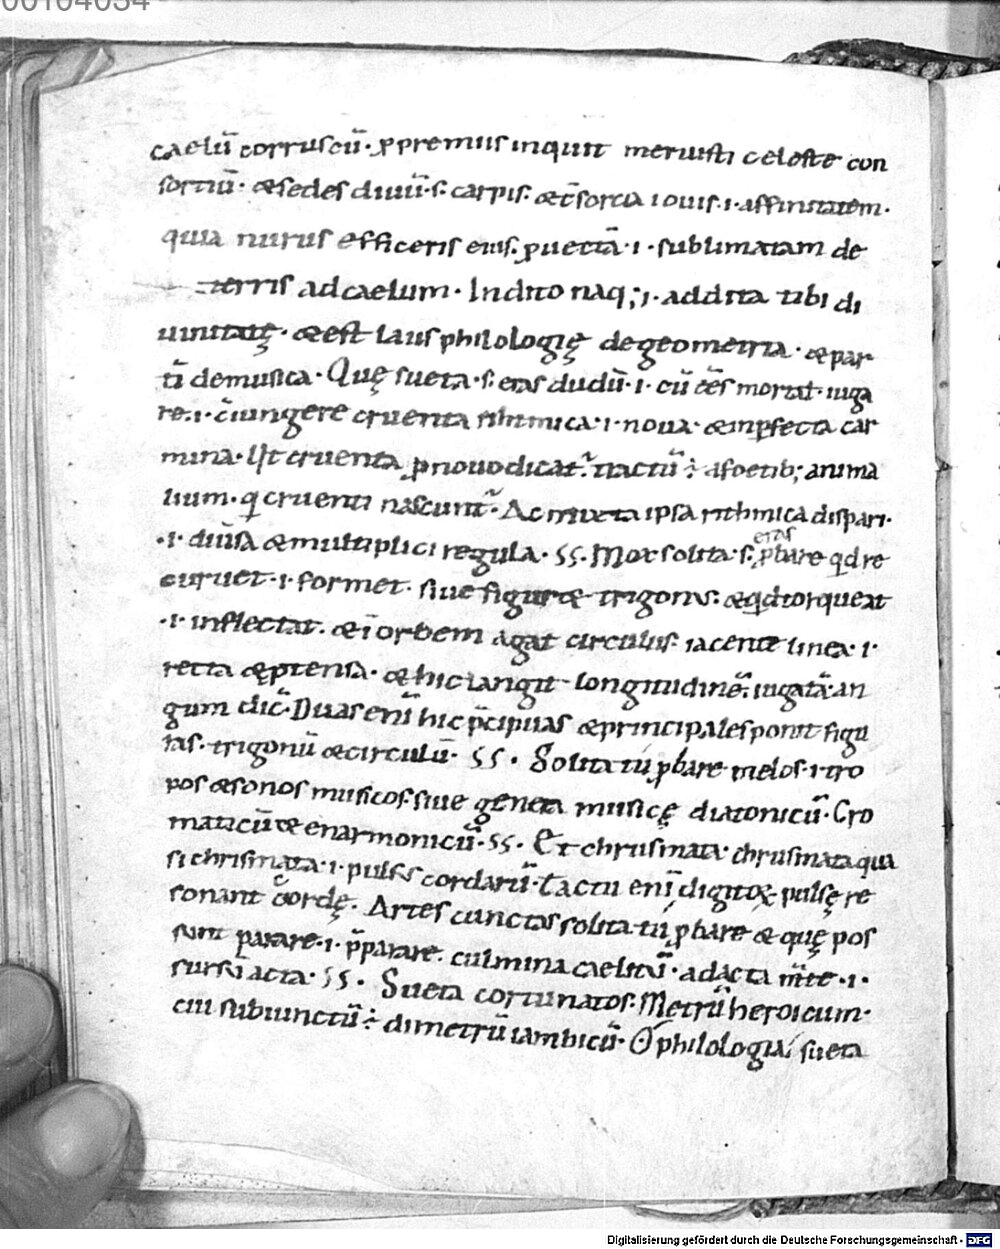 00104034
caelū corruscū· ꝓpremiis inquit meruisti celeste con
sortiū· & sedes diuū· s· carpis· & c̄sortia iouis· i· affinitatem·
quia nurus efficeris eius· ꝓuectā· i· sublimatam de
terris ad caelum· Indito naq;· i· addita tibi di
uinitatę· & est laus philologię de geometria· & par
tī de musica· Quę sueta· s· eras dudū· i· cū eēs mortal· iuga
re· i· c̄iungere cruenta rithmica· i· noua· & inꝑfecta car
mina· Ist cruenta ꝓ nouo dicat̄· tractū ÷ a foetib; anima
lium· qi cruenti nascunt̄· Ac mixta ipsa rithmica dispari·
·i· diuīsa & multiplici regula· SS· Mox solita· s· eras ꝓbare qd re
curuet· i· formet· siue figurae trigonus· & qd torqueat
·i· inflectat· & ī orbem agat circulus iacente linea· i·
recta & ꝓtensa· & hic tangit longitudinē· iugatā· an
gum dic̄· Duas enī hic p̄cipuas & principales ponit figu
ras· trigonū & circulū· SS· Solita tú ꝓbare melos· i· tro
pos & sonos musicos· siue genera musicę diatonicū· Cro
maticū & enarmonicū· SS· Et chrusmata· chrusmata qua
si chrismata· i· pulsus cordarū· Tactu enī digitoꝝ pulsę re
sonant cordę· Artes cunctas solita tú ꝓbare & quę pos
sunt parare· i· p̄parare· culmina caelitū· adacta m̄te· i·
sursū acta· SS· Sueta cortinatos· Metrū heroicum·
cui subiunctū ÷ dimetrū iambicū· O philologia sueta
Digitalisierung gefördert durch die Deutsche Forschungsgemeinschaft - DFG